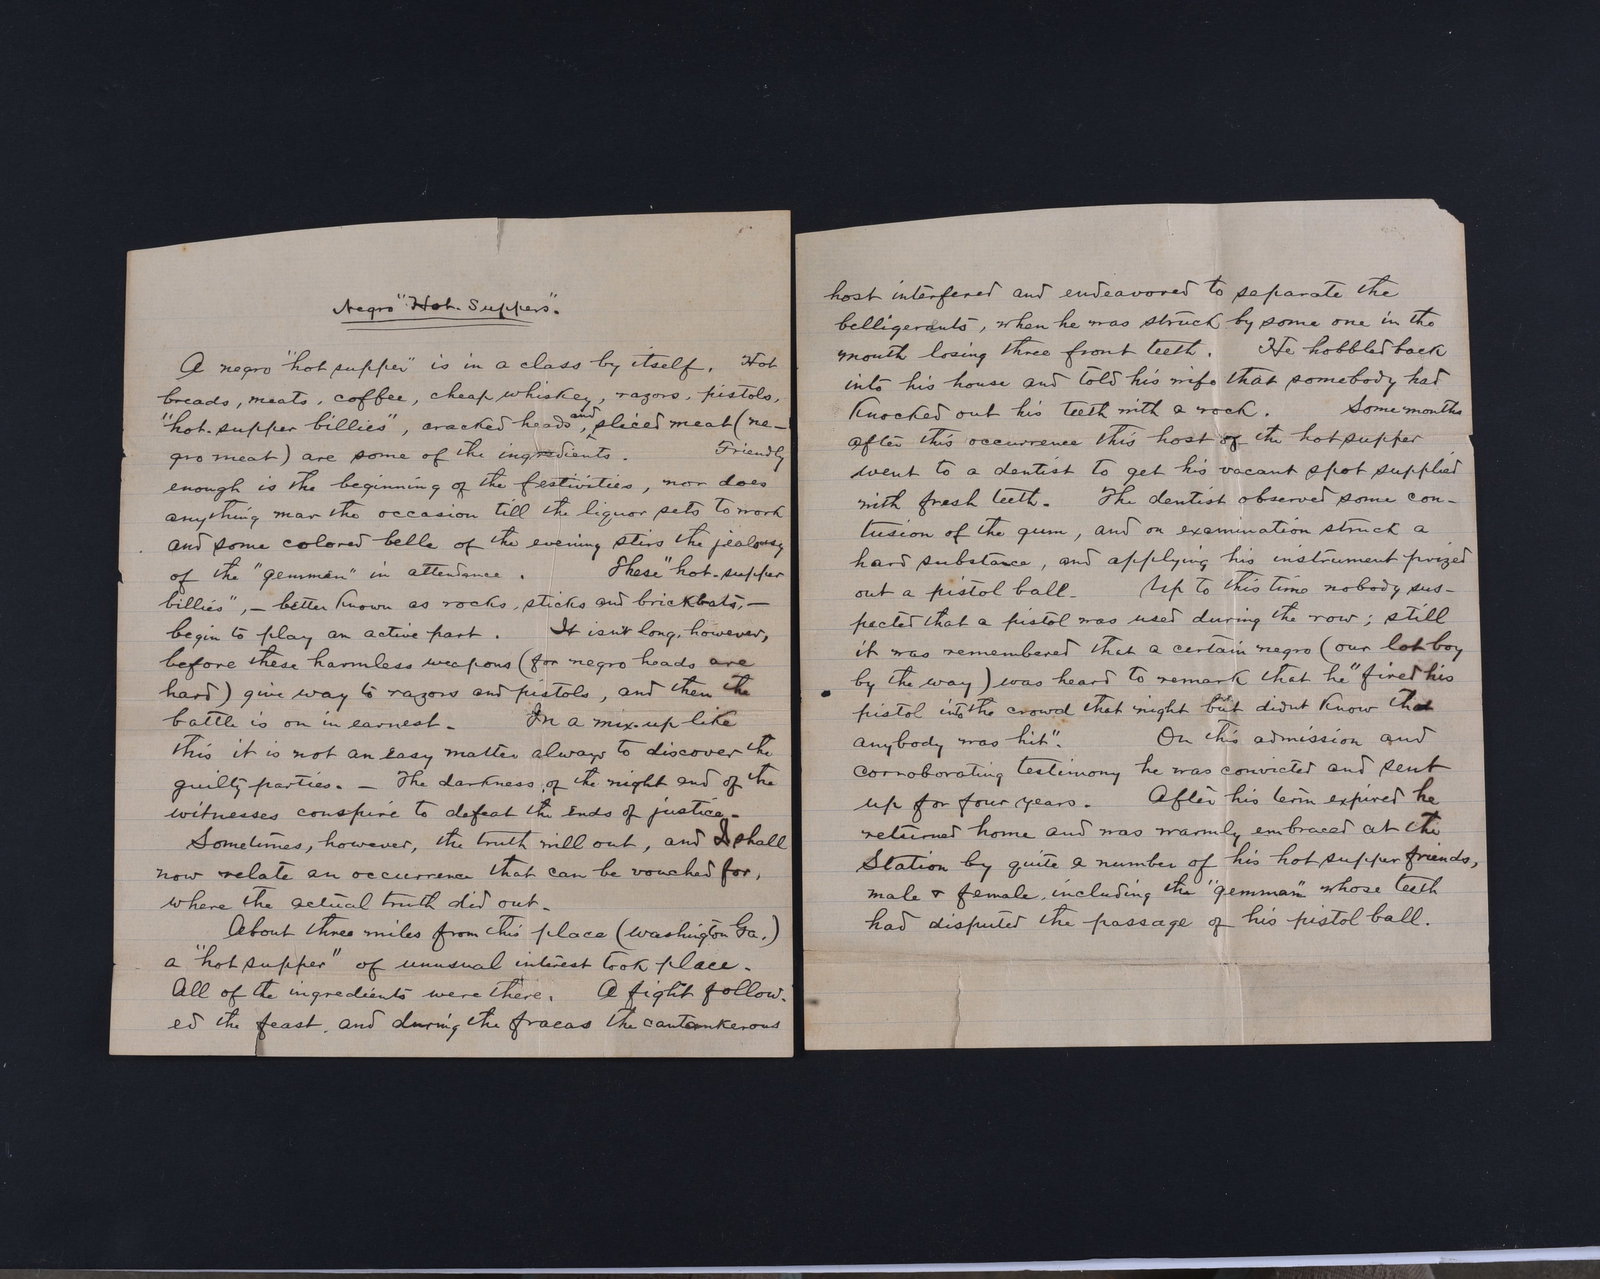 Negro "Hot-Suppers".
A negro "hot supper" is in a class by itself. Hot
breads, meats, coffee, cheap whiskey, razors, pistols,
"hot-supper billies", cracked heads, and sliced meat (ne-
gro meat) are some of the ingredients. Friendly
enough is the beginning of the festivities, nor does
anything mar the occasion till the liquor sets to work
and some colored belle of the evening stirs the jealousy
of the "gemman" in attendance. These "hot-supper
billies", — better known as rocks, sticks and brickbats, —
begin to play an active part. It isn't long, however,
before these harmless weapons (for negro heads are
hard) give way to razors and pistols, and then the
battle is on in earnest. In a mix-up like
this it is not an easy matter always to discover the
guilty parties. — The darkness of the night and of the
witnesses conspire to defeat the ends of justice.
Sometimes, however, the truth will out, and I shall
now relate an occurrence that can be vouched for,
where the actual truth did out.
About three miles from this place (Washington Ga.)
a "hot supper" of unusual interest took place.
All of the ingredients were there. A fight follow-
ed the feast, and during the fracas the cantankerous
host interfered and endeavored to separate the
belligerants, when he was struck by some one in the
mouth losing three front teeth. He hobbled back
into his house and told his wife that somebody had
knocked out his teeth with a rock. Some months
after this occurrence this host of the hot supper
went to a dentist to get his vacant spot supplied
with fresh teeth. The dentist observed some con-
tusion of the gum, and on examination struck a
hard substance, and applying his instrument prized
out a pistol ball. Up to this time nobody sus-
pected that a pistol was used during the row; still
it was remembered that a certain negro (our lot boy
by the way) was heard to remark that he "fired his
pistol into the crowd that night but didnt know that
anybody was hit". On this admission and
corroborating testimony he was convicted and sent
up for four years. After his term expired he
returned home and was warmly embraced at the
Station by quite a number of his hot supper friends,
male & female, including the "gemman" whose teeth
had disputed the passage of his pistol ball.